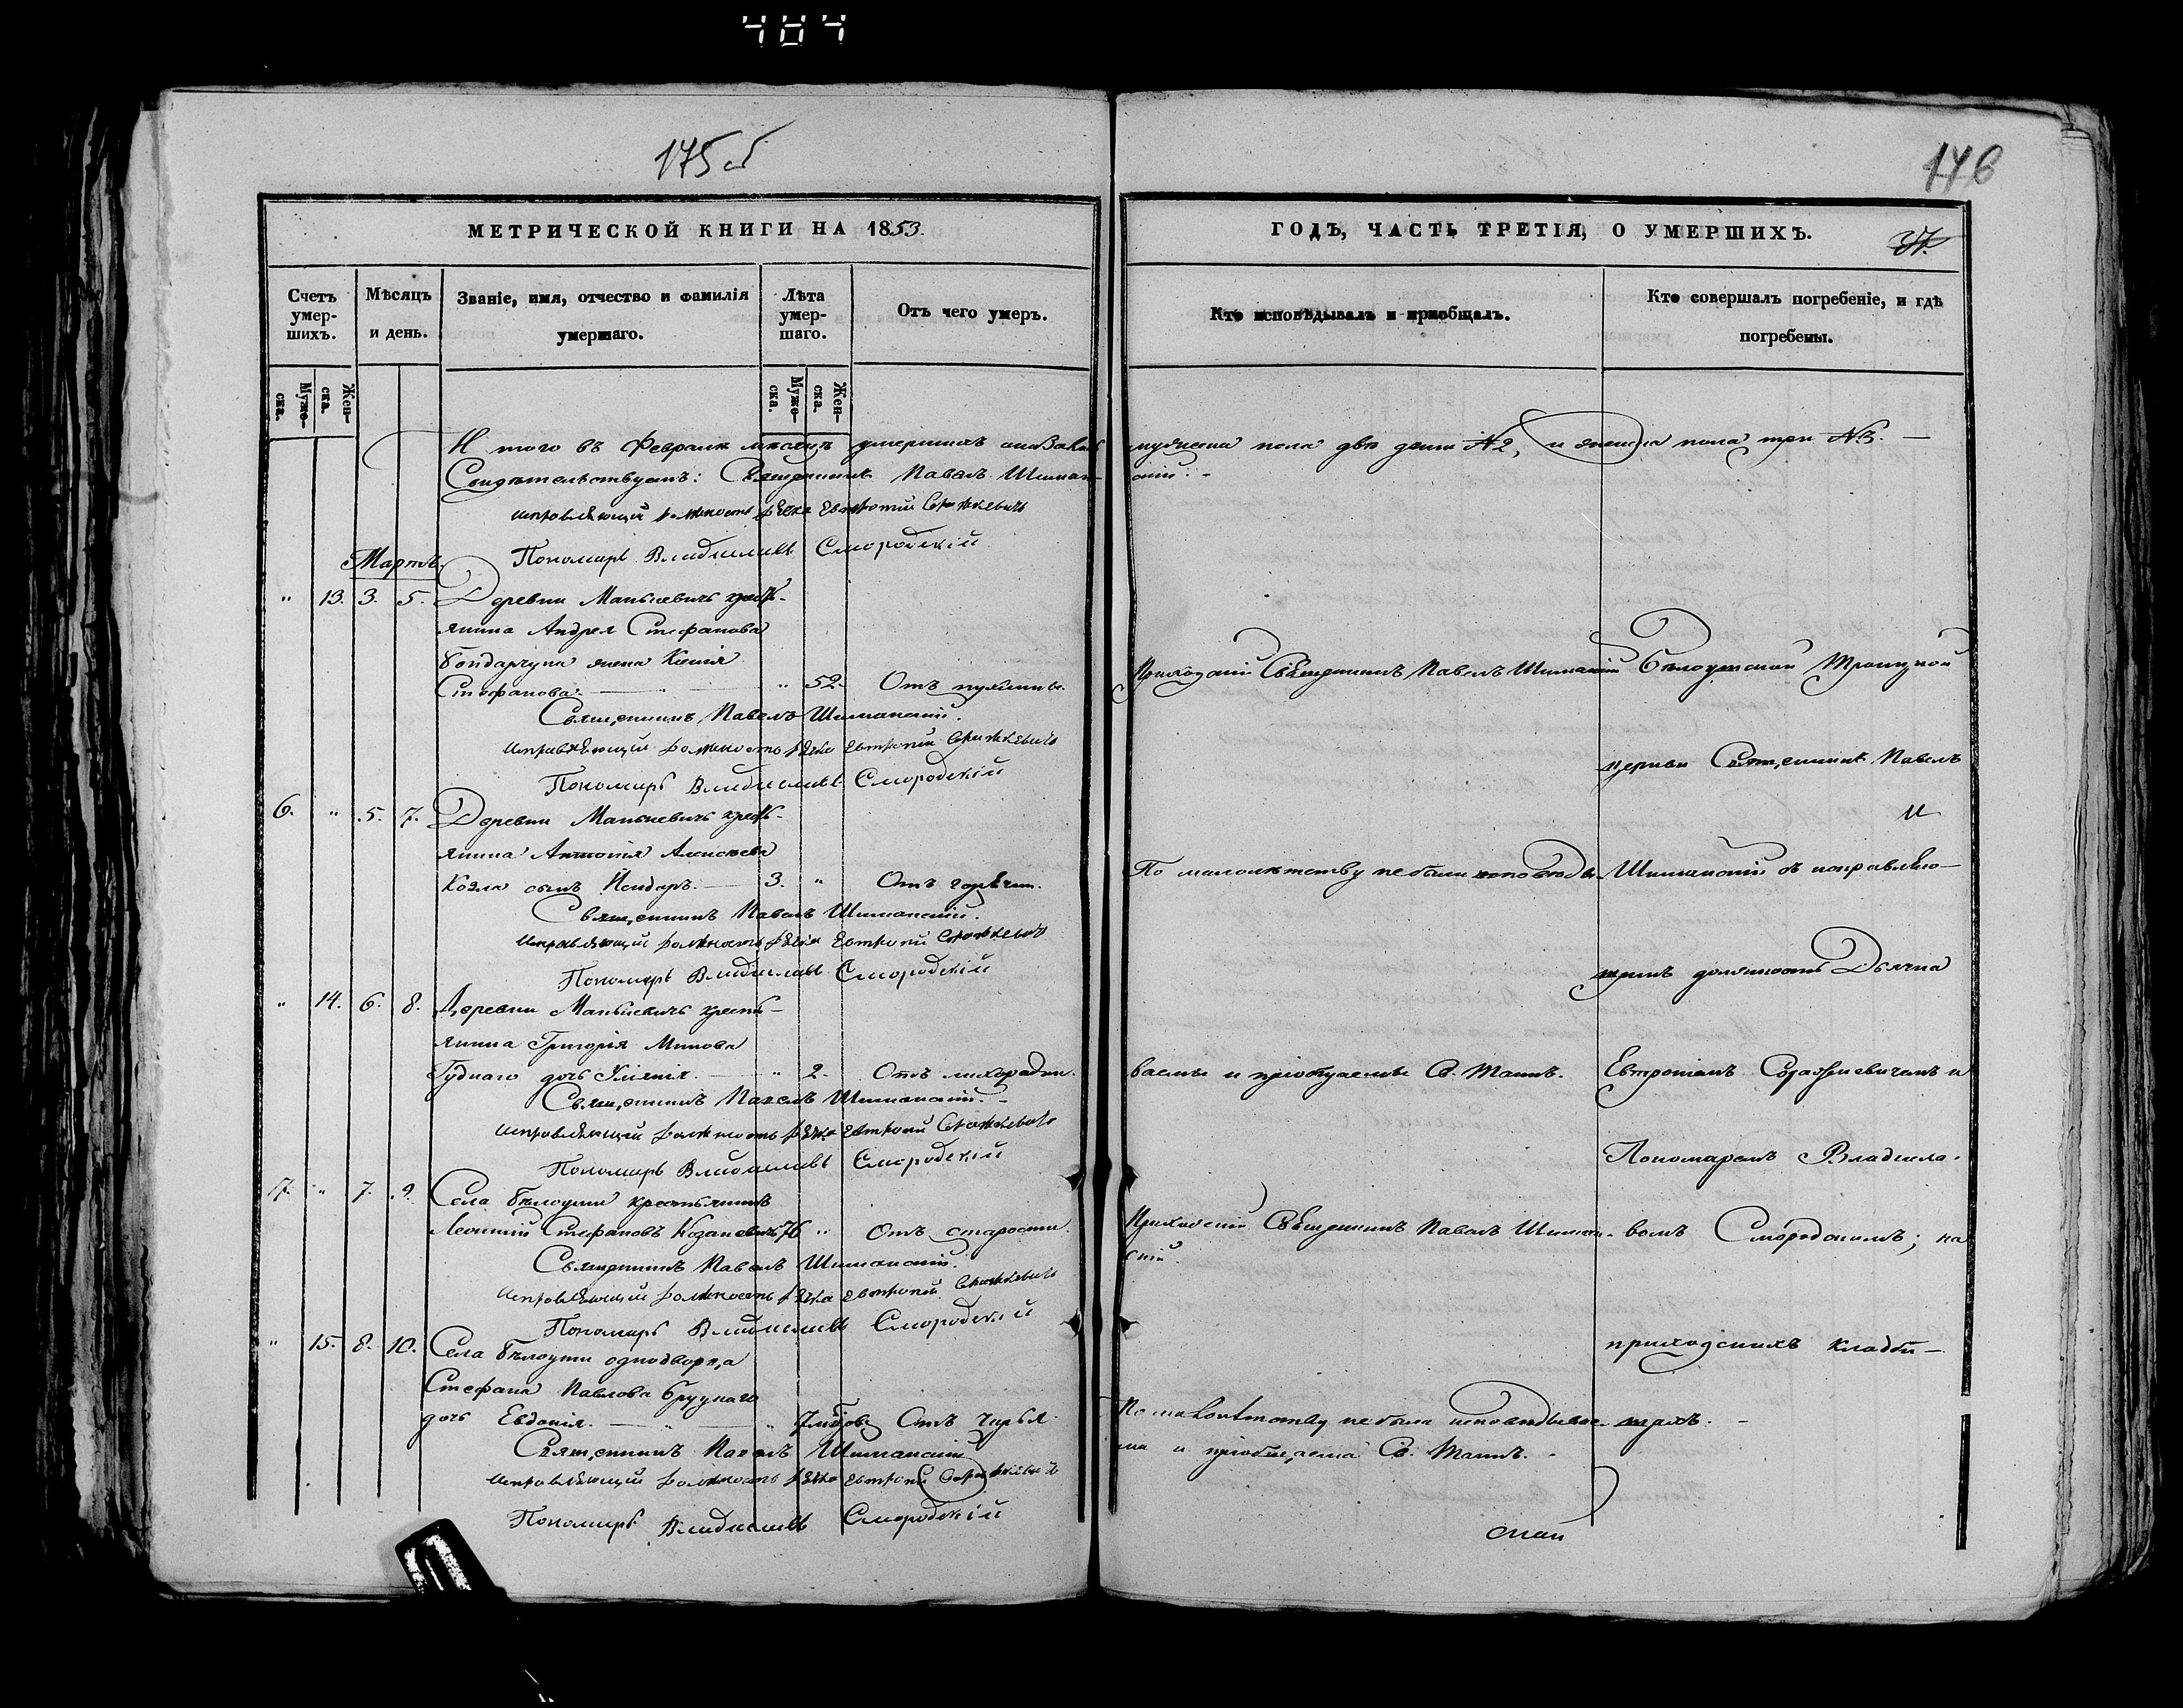 484
175 об
176
МЕТРИЧЕСКОЙ КНИГИ НА 1853.
ГОДЪ, ЧАСТЬ ТРЕТІЯ, О УМЕРШИХЪ.
37.
Счетъ умер-шихъ.
Мѣсяцъ и день.
Званіе, имя, отчество и фамилія умершаго.
Лѣта умер-шаго.
Отъ чего умеръ.
Кто исповѣдывалъ и пріобщалъ.
Кто совершалъ погребеніе, и гдѣ погребены.
Муже-ска.
Жен-ска.
Муже-ска.
Жен-ска.
И того въ Февралѣ мѣсяцѣ умершихъ мужеска пола двѣ души №2, и женска пола три №3. —
Свидѣтельствуемъ: Священникъ Павелъ Шиманскій. -
Исправляющій должность дьячка Евтропій
Пономарь Владиславъ Смородскій
Мартъ.
" 13. 3. 5. Деревни Манькевичъ кресть-
янина Андрея Стефанова
Бондарчука жена Ксенія
Стефанова. — " — " 52. Отъ
Приходскій Священникъ Павелъ Шиманскій
Бѣлоушской Троицкой
Священникъ Павелъ Шиманскій.
Исправляющій должность дьячка Евтропій
Пономарь Владиславъ Смородскій
церкви Священникъ Павелъ
6. " 5. 7. Деревни Манькевичъ кресть-
янина Антонія Алексѣева
Козла сынъ Исидоръ. — 3. " Отъ горячки.
По малолѣтству не были исповѣды-
Шиманскій съ исправляю-
Священникъ Павелъ Шиманскій.
Исправляющій должность дьячка Евтропій
Пономарь Владиславъ Смородскій
щимъ должность Дьячка
" 14. 6. 8. Деревни Манькевичъ кресть-
янина Григорія Минова
дочь Уліянія. — " 2. Отъ лихорадки.
ваемы и пріобщаемы Св. Таинъ.
Евтропіемъ и
Священникъ Павелъ Шиманскій. -
Исправляющій должность дьячка Евтропій
Пономарь Владиславъ Смородскій
Пономаремъ Владисла-
17. " 7. 9. Села Бѣлоуши крестьянинъ
Леонтій Стефановъ 76 " Отъ старости.
Приходскій Священникъ Павелъ Шиман-
скій.
вомъ Смородскимъ; на
Священникъ Павелъ Шиманскій.
Исправляющій должность дьячка Евтропій
Пономарь Владиславъ Смородскій
" 15. 8. 10. Села Бѣлоуши однодворца
приходскихъ кладби-
Стефана Павлова
дочь Евдокія. — " — " Отъ
По малолѣтству не была исповѣдывае-
ма и пріобщаема Св. Таинъ. -
щахъ. -
Священникъ Павелъ Шиманскій
Исправляющій должность дьячка Евтропій
Пономарь Владиславъ Смородскій